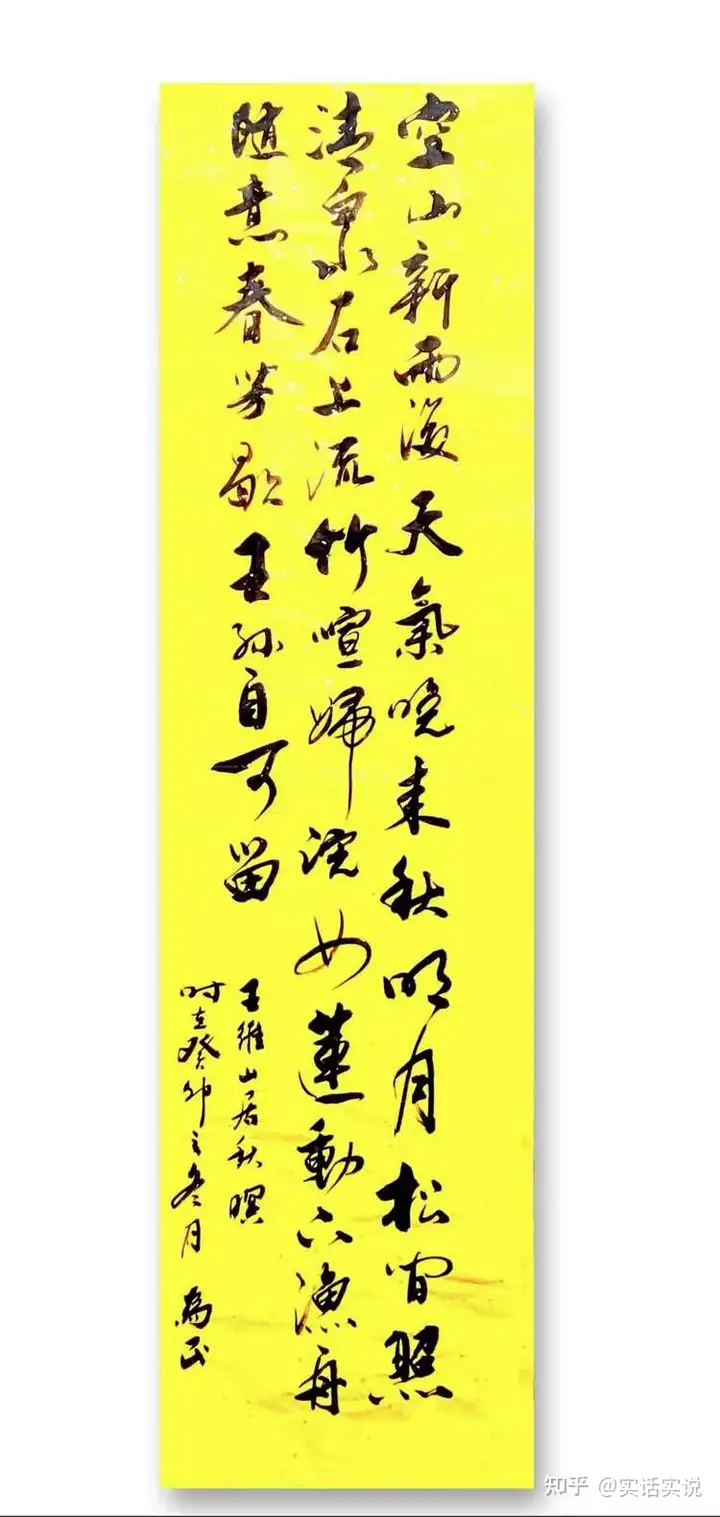 空山新雨後天氣晚来秋明月松間照
清泉石上流竹喧婦浣女蓮動下漁舟
随意春芳歇王孫自可留
王維山居秋暝
时在癸卯之冬月
知乎 @实话实说